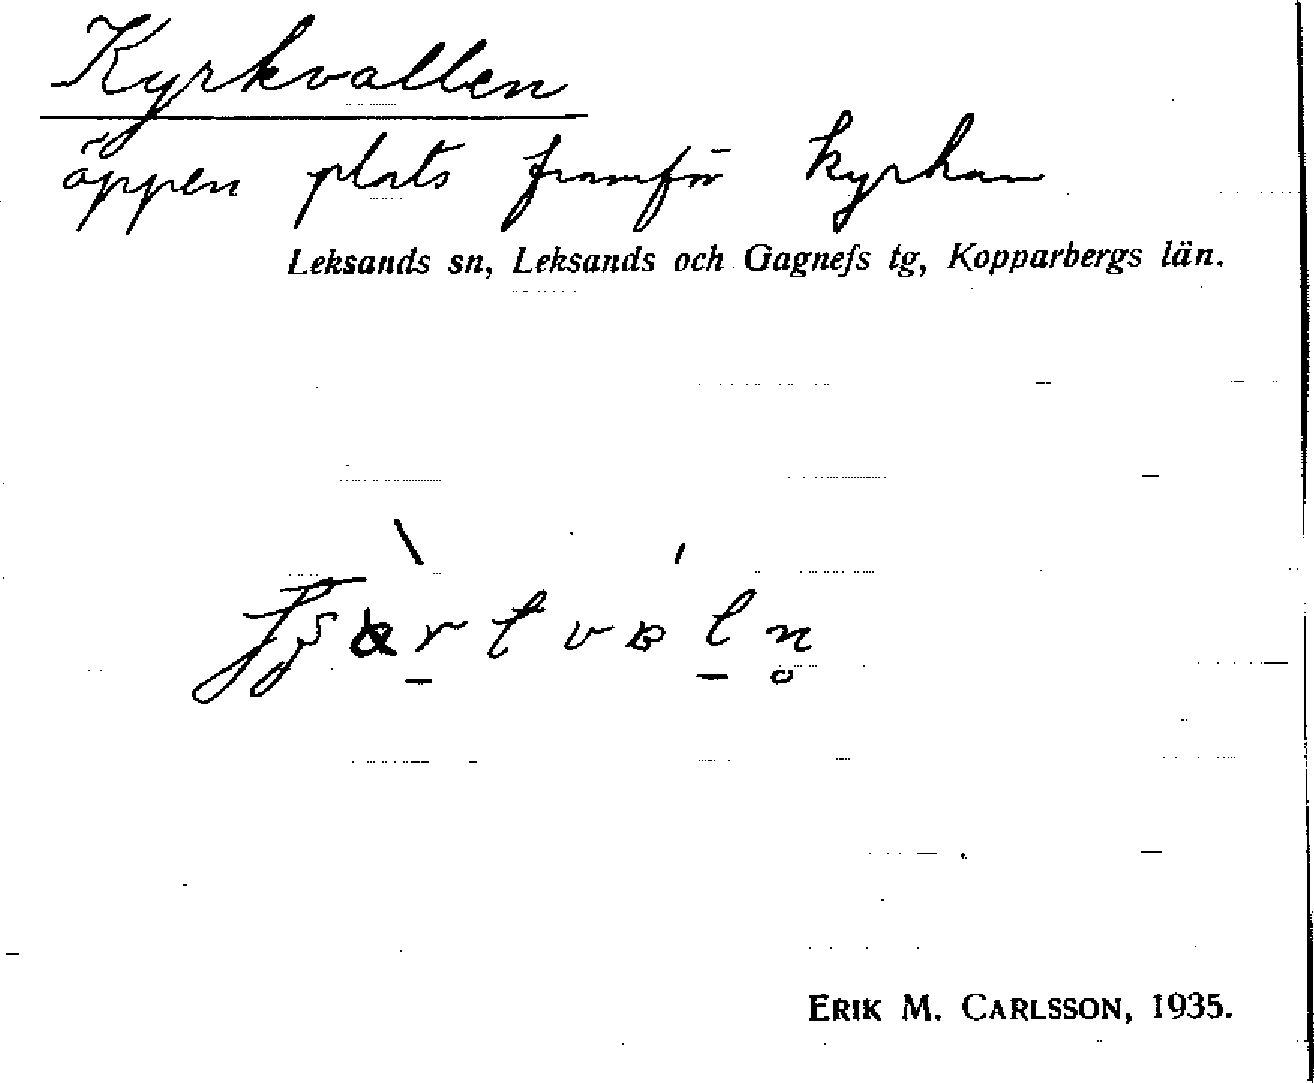 Kyrkvallen
öppen plats framför kyrkan
Leksands sn, Leksands och Gagnefs tg, Kopparbergs län.
ERIK M. CARLSSON, 1935.